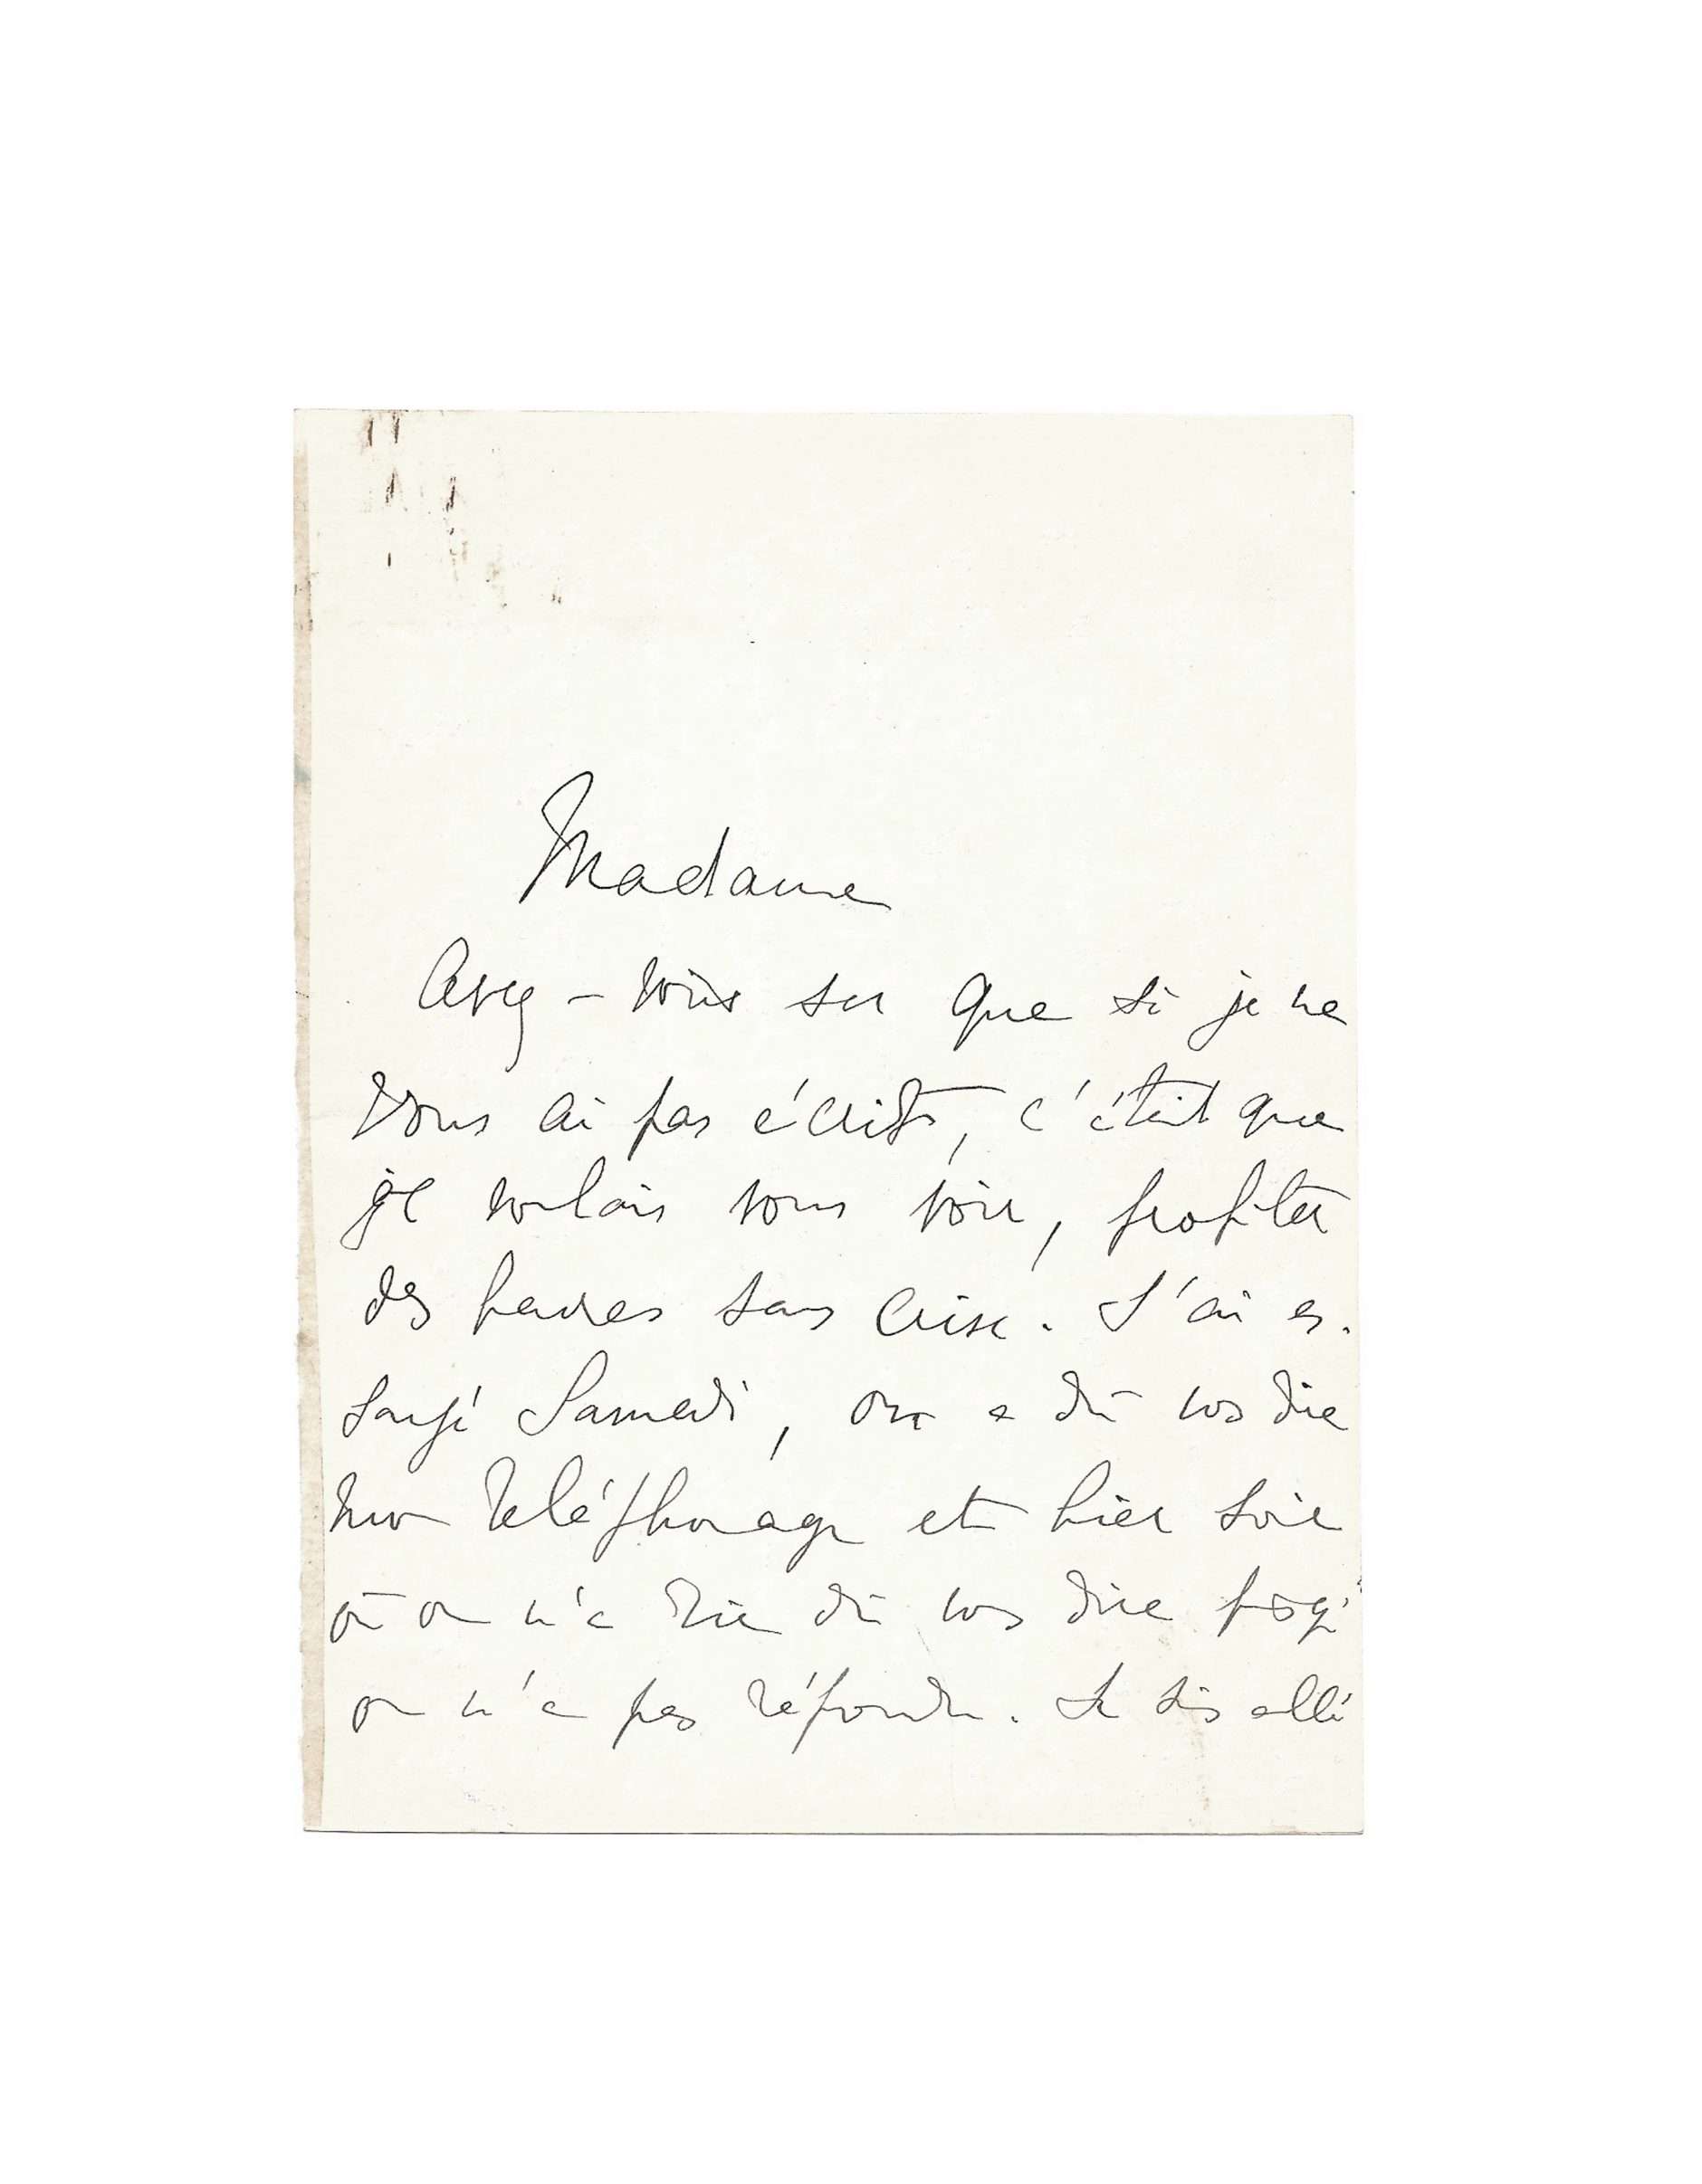 Madame
Avez-vous su que si je ne
vous ai pas écrit, c'était que
je voulais vous voir, profiter
des heures sans crise. J'ai es-
sayé Samedi, on a dû vos dire
mon téléphonage et hier soir
où on n'a rien dû vos dire psq'
on n'a pas répondu. Je suis allé